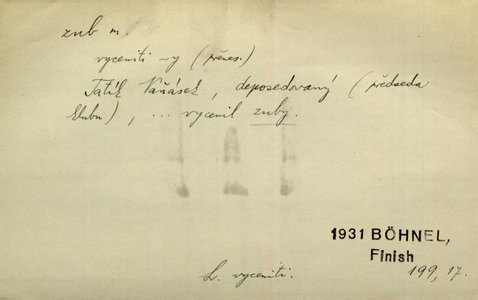 zub m.
vyceniti ~y (přenes.)
Tatík Vaňásek, deposedovaný (předseda
klubu), ... vycenil zuby.
1931 BÖHNEL,
Finish
199, 17.
vyceniti.